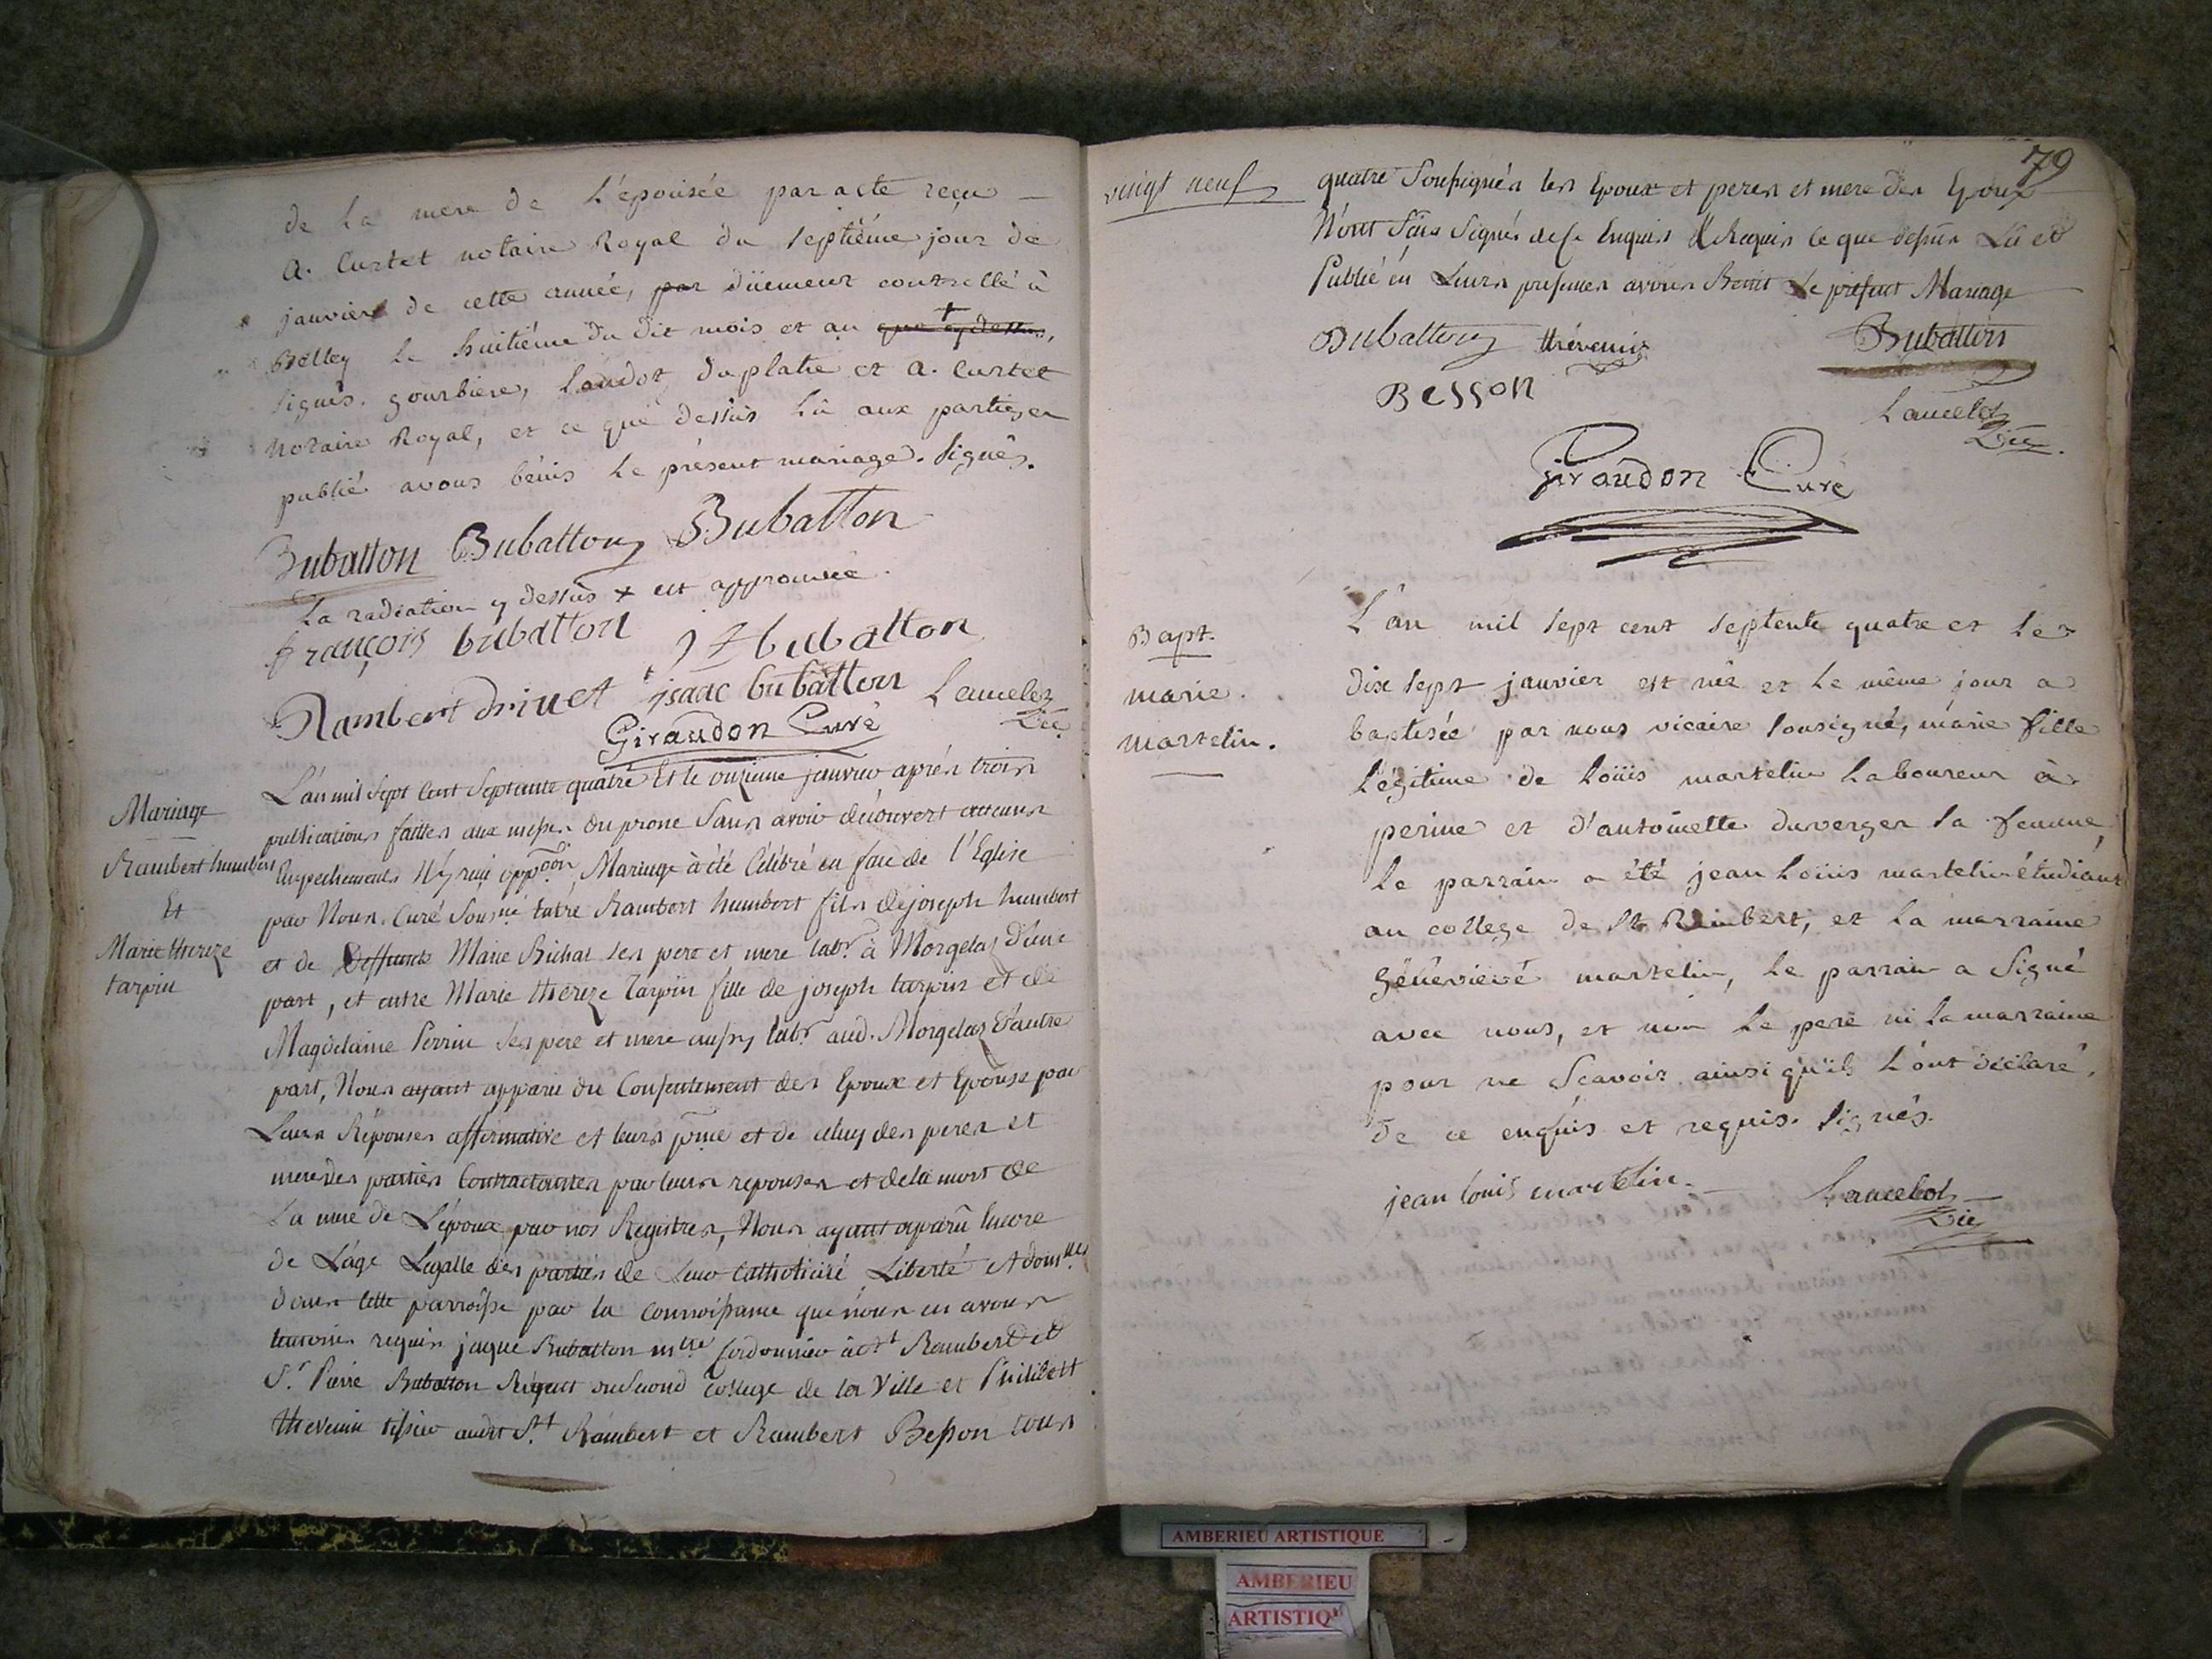 de la mere de l'épousée par acte reçu —
a. Curtet notaire Royal du septiéme jour de
janvier de cette année, par düement contrellé à
Belley le huitiéme du dit mois et an que cy dessus,
signés. gourbiere, Laudoz duplatre et a. Curtet
notaire Royal, et ce que dessus lû aux parties et
publié avons bénis le présent mariage. signés.
Bubatton Bubatton Bubatton
la radiation cy dessus + est approuvée.
françois bubatton J H bubatton
Rambert drivet isaac bubatton Lancelot
Giraudon Curé Vic
Mariage
Rambert humbert
Et
Marie thereze
tarpin
L'an mil sept cent septante quatre Et le onzieme janvier aprés trois
publications faittes aux messes du prone sans avoir découvert aucuns
Empechements Ny reçu oppõon, Mariage à été Célébré en face de l'Eglise
par Nous Curé sousné entre Rambert humbert fils de joseph humbert
et de Deffunte Marie Bichat ses pere et mere labr. à Morgelas d'une
part, et entre Marie thereze Tarpin fille de joseph tarpin et de
Magdelaine Perrin ses pere et mere aussy labr. aud. Morgelas d'autre
part, Nous ayant apparu du Consentement des Epoux et Epouse par
Leurs Réponses affirmative et leurs pñce et de celuy des peres et
mere des parties Contractantes par leurs reponses et de la mort de
La mere de L'époux par nos Registres, Nous ayant apparû Encore
de L'age Légalle des parties de leur Catholicité Liberté et domlles
dans cette parroisse par la connoissance que nous en avons
temoins requis jaque Bubatton mtre Cordonnier à St Rambert et
Sr. Pierre Bubatton Régent du second college de la Ville et Philibert
thevenin tissier audt St. Rambert et Rambert Besson tous
79
vingt neuf
quatre soussignés les Epoux et peres et mere des Epoux
N'ont sçus signés de ce Enquis & Requis ce que dessus Lû et
Publié en Leurs presences avons Benit Le présent Mariage
Bubatton thévenin Bubatton
Besson Lancelot
Vic.
Giraudon Curé
Bapt.
marie.
martelin.
L'an mil sept cent septente quatre et le
dix sept janvier est née et le même jour a
baptisée par nous vicaire sousigné, marie fille
légitime de Loüis martelin laboureur à
perine et d'antoinette duverger sa femme
le parrain a été jean Loüis martelin étudiant
au college de St Rambert, et la marraine
Génevievé martelin, le parrain a signé
avec nous, et non le pere ni la marraine
pour ne sçavoir ainsi qu'ils l'ont déclaré,
de ce enquis et requis. signés.
jean louis martelin. Lancelot
Vic
AMBERIEU ARTISTIQUE
AMBERIEU
ARTISTIQU